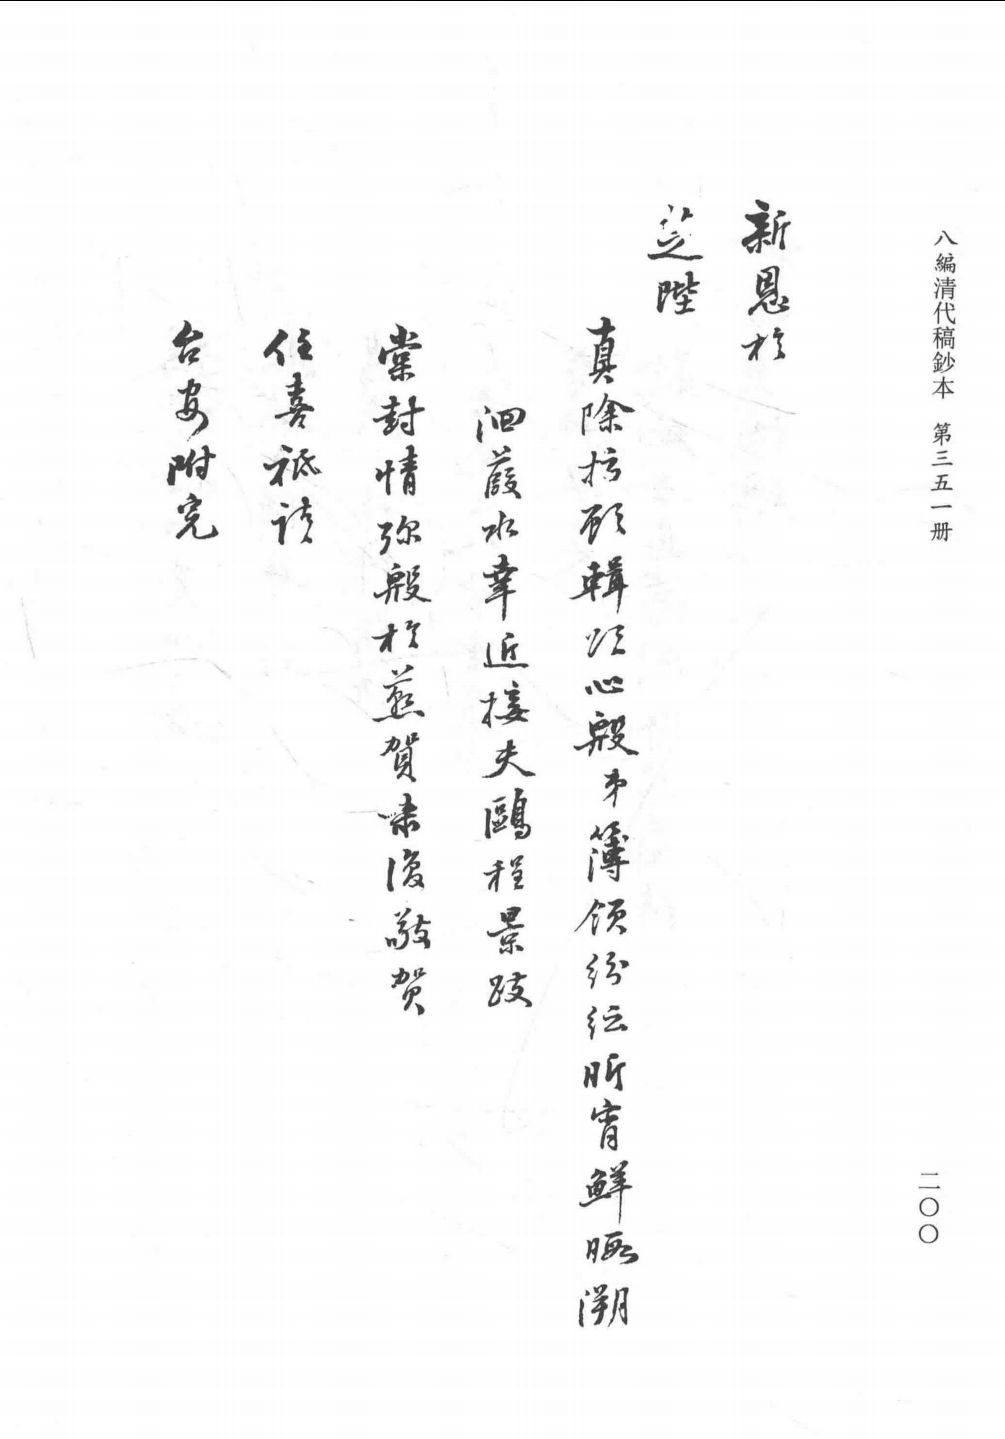 八編清代稿鈔本　第三五一册
二〇〇
新恩於
芝陛
真除
輯頌心殷弟簿領紛紜昕宵鮮暇溯
洄葭水幸近接夫鷗程景跂
棠封情弥殷於燕賀肅復敬賀
任喜祗請
台安附完